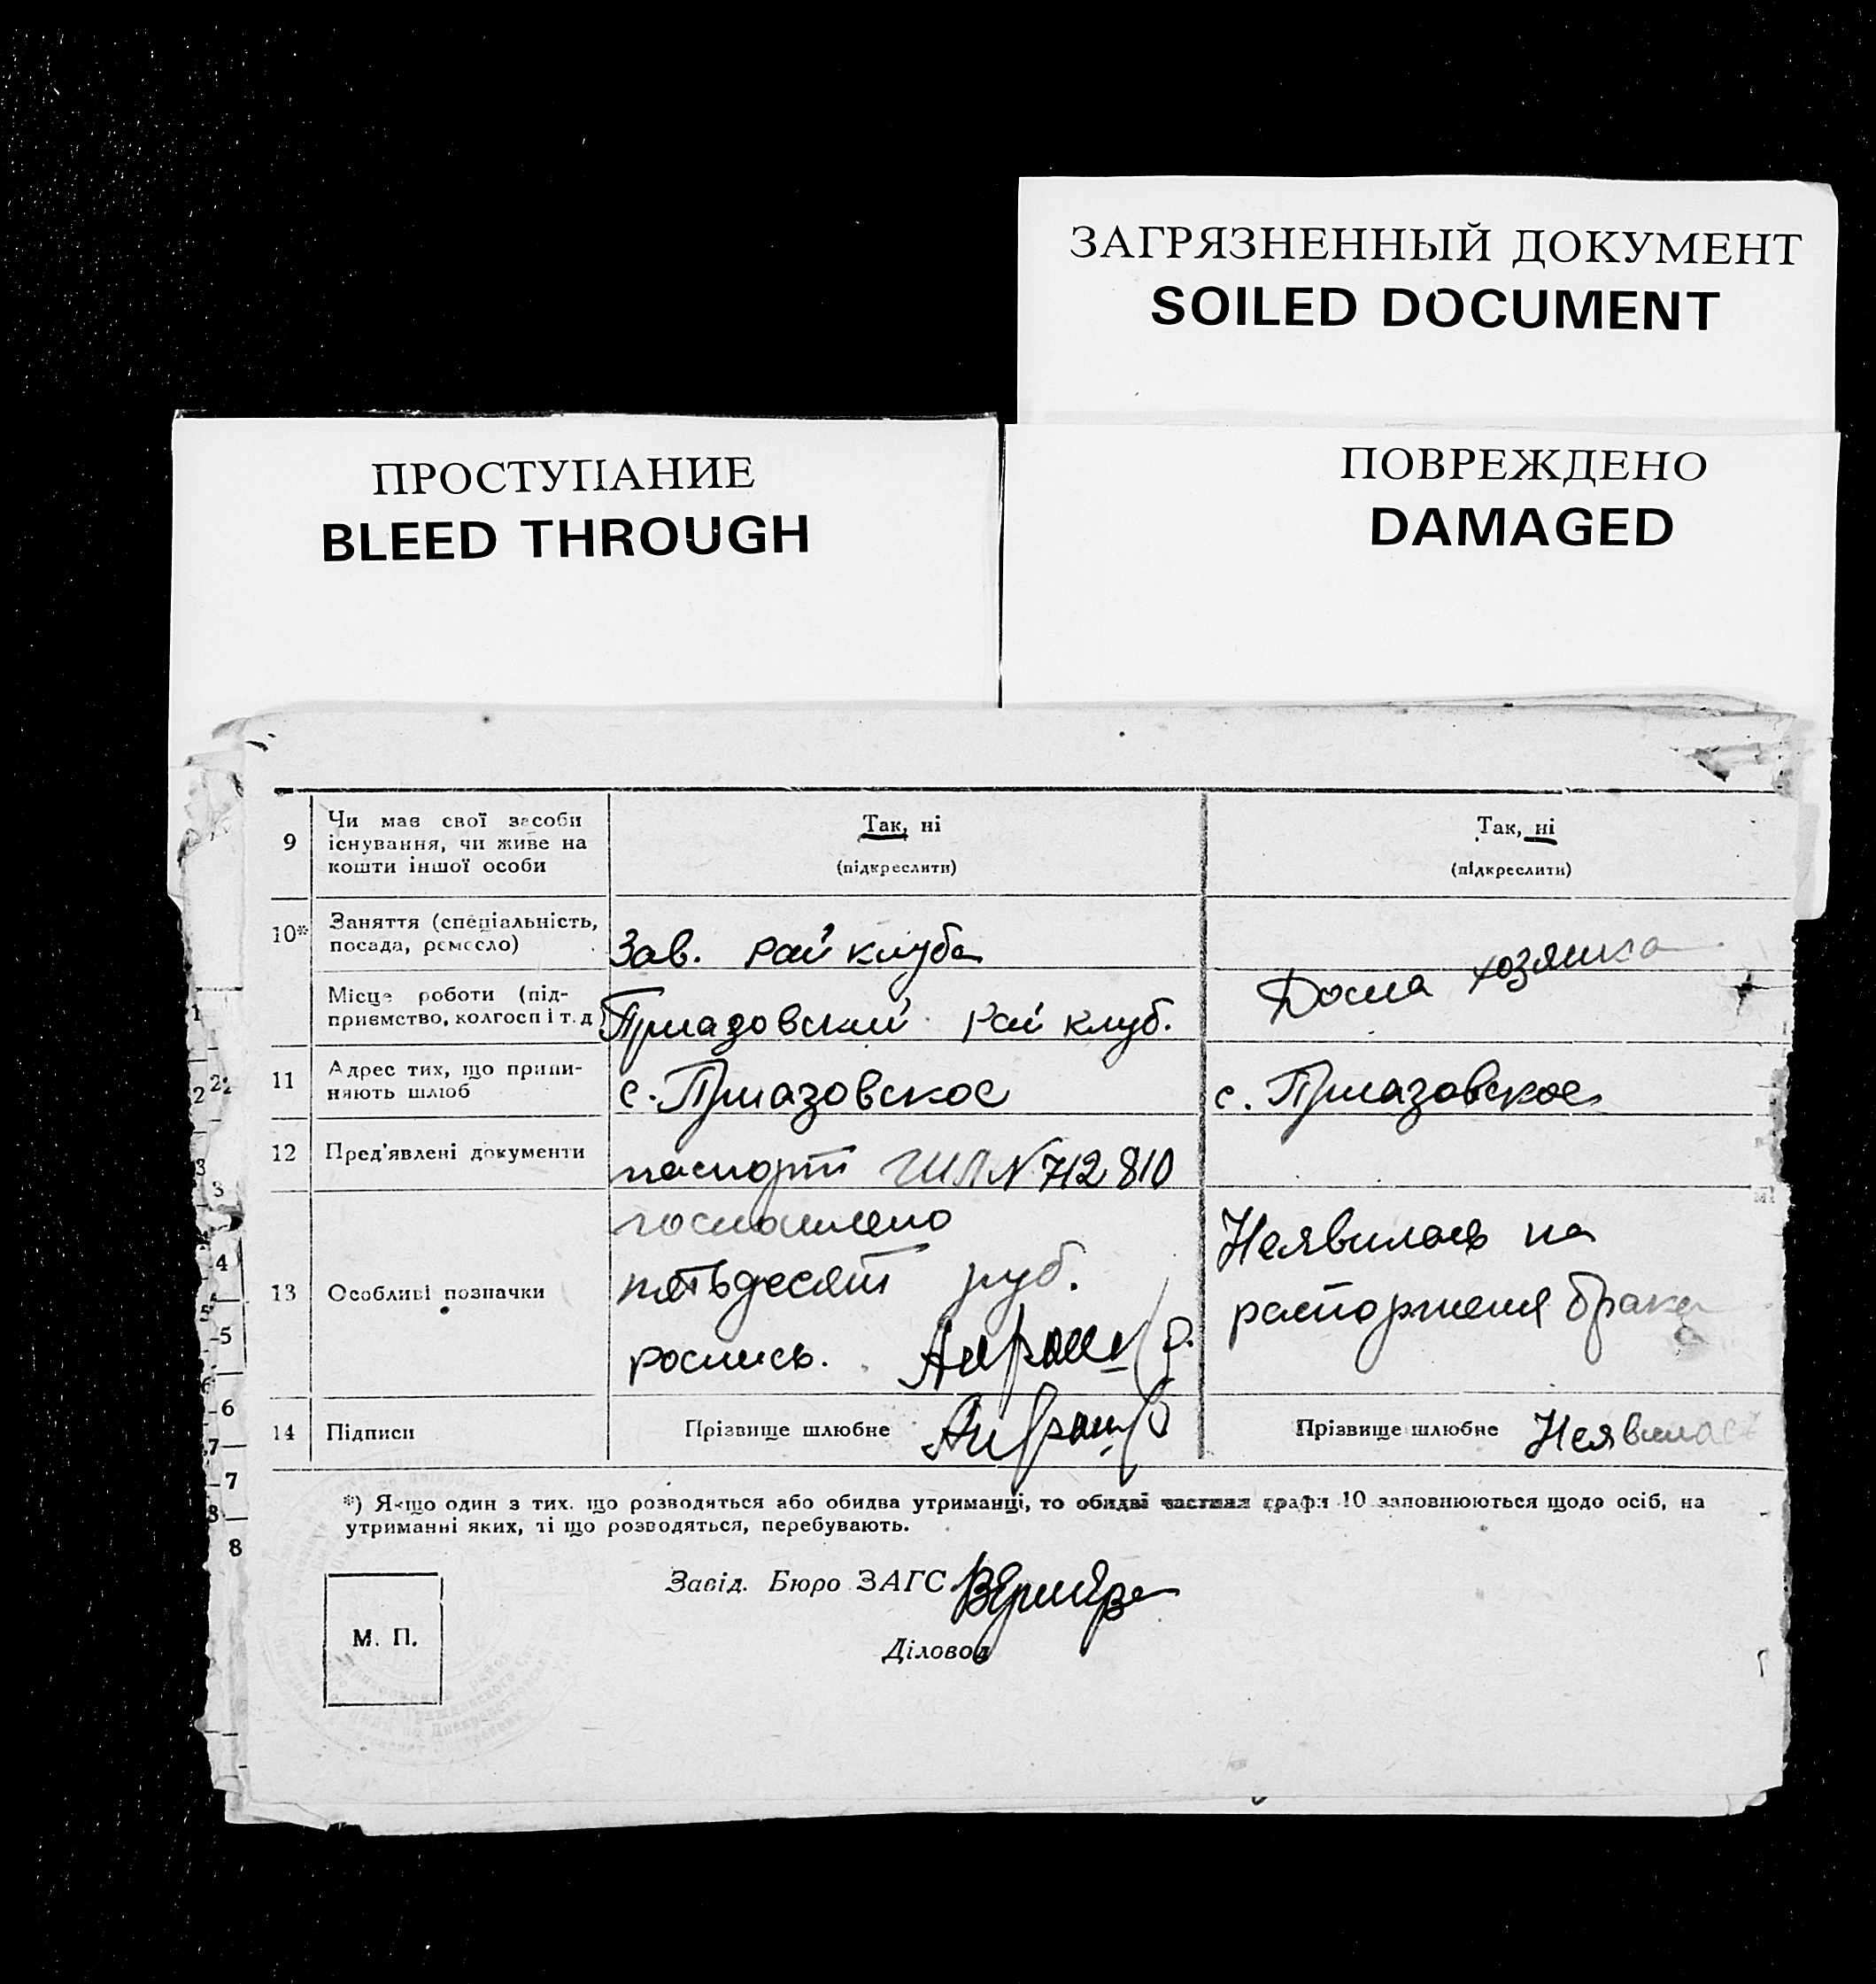 ЗАГРЯЗНЕННЫЙ ДОКУМЕНТ
SOILED DOCUMENT
ПРОСТУПАНИЕ
BLEED THROUGH
ПОВРЕЖДЕНО
DAMAGED
9 Чи має свої засоби існування, чи живе на кошти іншої особи
Так, ні
(підкреслити)
Так, ні
(підкреслити)
10* Заняття (спеціальність, посада, ремесло)
Зав. рай клуба
Дома хозяйка
Місце роботи (підприємство, колгосп і т. д.)
Приазовский рай клуб.
11 Адрес тих, що припиняють шлюб
с. Приазовское
с. Приазовское
12 Пред'явлені документи
паспорт N 712810
13 Особливі позначки
пятьдесят руб.
роспись.
Неявилась на
расторженя брака
14 Підписи
Прізвище шлюбне
Прізвище шлюбне Неявилась
*) Якщо один з тих, що розводяться або обидва утриманці, то обидві частини графи 10 заповнюються щодо осіб, на
утриманні яких, ті що розводяться, перебувають.
Завід. Бюро ЗАГС
Діловод
М. П.
1
2 2
3
3
4
5
5
6
6
7
7
8
8